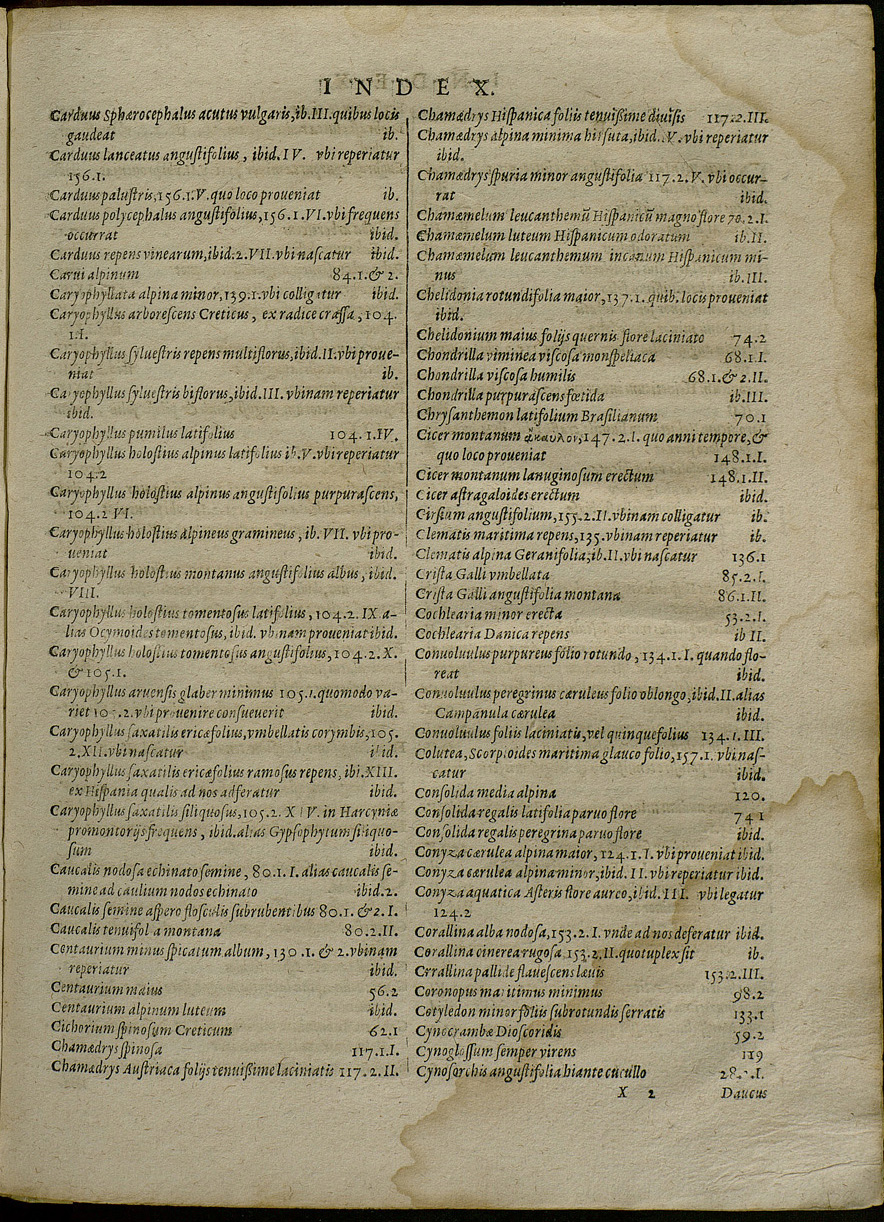 INDEX.
Carduus Sphærocephalus acutus vulgaris, ib. III. quibus locis
gaudeat ib.
Carduus lanceatus angustifolius, ibid. IV. vbi reperiatur
156.1.
Carduus palustris, 156.1. V. quo loco proueniat ib.
Carduus polycephalus angustifolius, 156.1. VI. vbi frequens
occurrat ibid.
Carduus repens vinearum, ibid. 2. VII. vbi nascatur ibid.
Carui alpinum 84.1. & 2.
Caryophyllata alpina minor, 139.1. vbi colligatur ibid.
Caryophyllus arborescens Creticus, ex radice crassa, 104.
1.I.
Caryophyllus syluestris repens multiflorus, ibid. II. vbi proue-
niat ib.
Caryophyllus syluestris biflorus, ibid. III. vbinam reperiatur
ibid.
Caryophyllus pumilus latifolius 104.1. IV.
Caryophyllus holostius alpinus latifolius ib. V. vbi reperiatur
104.2
Caryophyllus holostius alpinus angustifolius purpurascens,
104.2 VI.
Caryophyllus holostius Alpineus gramineus, ib. VII. vbi pro-
ueniat ibid.
Caryophyllus holostius montanus angustifolius albus, ibid.
VIII.
Caryophyllus holostius tomentosus latifolius, 104.2. IX a-
lias Ocymoides tomentosus, ibid. vbinam proueniat ibid.
Caryophyllus holostius tomentosus angustifolius, 104.2. X.
& 105.1.
Caryophyllus aruensis glaber minimus 105.1. quomodo va-
riet 105.2. vbi prouenire consueuerit ibid.
Caryophyllus saxatilis ericæfolius, vmbellatis corymbis, 105.
2. XII. vbi nascatur ibid.
Caryophyllus saxatilis ericæfolius ramosus repens, ibi. XIII.
ex Hispania qualis ad nos adferatur ibid.
Caryophyllus saxatilis siliquosus, 105.2. XIV. in Harcyniæ
promontorijs frequens, ibid. alias Gypsophytum siliquo-
sum ibid.
Caucalis nodosa echinato semine, 80.1. I. alias caucalis se-
mine ad caulium nodos echinato ibid. 2.
Caucalis semine aspero flosculis subrubentibus 80.1. & 2. I.
Caucalis tenuifolia montana 80.2. II.
Centaurium minus spicatum album, 130.1. & 2. vbinam
reperiatur ibid.
Centaurium maius 56.2
Centaurium alpinum luteum ibid.
Cichorium spinosum Creticum 62.1
Chamædrys spinosa 117.1. I.
Chamædrys Austriaca folijs tenuissime laciniatis 117.2. II.
Chamædrys Hispanica foliis tenuissime diuisis 117.2. III.
Chamædrys alpina minima hirsuta, ibid. V. vbi reperiatur
ibid.
Chamædrys spuria minor angustifolia 117.2. V. vbi occur-
rat ibid.
Chamæmelum leucanthemũ Hispanicũ magno flore 70.2. I.
Chamæmelum luteum Hispanicum odoratum ib. II.
Chamæmelum leucanthemum incanum Hispanicum mi-
nus ib. III.
Chelidonia rotundifolia maior, 137.1. quib. locis proueniat
ibid.
Chelidonium maius folijs quernis flore laciniato 74.2
Chondrilla viminea viscosa monspeliaca 68.1. I.
Chondrilla viscosa humilis 68.1. & 2. II.
Chondrilla purpurascens fœtida ib. III.
Chrysanthemon latifolium Brasilianum 70.1
Cicer montanum ἄκαυλον, 147.2. I. quo anni tempore, &
quo loco proueniat 148.1. I.
Cicer montanum lanuginosum erectum 148.1. II.
Cicer astragaloides erectum ibid.
Cirsium angustifolium, 155.2. II. vbinam colligatur ib.
Clematis maritima repens, 135. vbinam reperiatur ib.
Clematis alpina Geranifolia; ib. II. vbi nascatur 136.1
Crista Galli vmbellata 85.2. I.
Crista Galli angustifolia montana 86.1. II.
Cochlearia minor erecta 53.2. I.
Cochlearia Danica repens ib II.
Conuoluulus purpureus folio rotundo, 134.1. I. quando flo-
reat ibid.
Conuoluulus peregrinus cæruleus folio oblongo, ibid. II. alias
Campanula cærulea ibid.
Conuoluulus foliis laciniatis, vel quinquefolius 134.1. III.
Colutea, Scorpioides maritima glauco folio, 157.1. vbi nas-
catur ibid.
Consolida media alpina 120.
Consolida regalis latifolia paruo flore 74 1
Consolida regalis peregrina paruo flore ibid.
Conyza cærulea alpina maior, 124.1. I. vbi proueniat ibid.
Conyza cærulea alpina minor, ibid. II. vbi reperiatur ibid.
Conyza aquatica Asteris flore aureo, ibid. III. vbi legatur
124.2
Corallina alba nodosa, 153.2. I. vnde ad nos deferatur ibid.
Corallina cinerea rugosa, 153.2. II. quotuplex sit ib.
Corallina pallide flauescens læuis 153.2. III.
Coronopus maritimus minimus 98.2
Cotyledon minor foliis subrotundis serratis 133.1
Cynocrambæ Dioscoridis 59.2
Cynoglossum semper virens 119
Cynosorchis angustifolia hiante cucullo 28.1. I.
X 2 Daucus